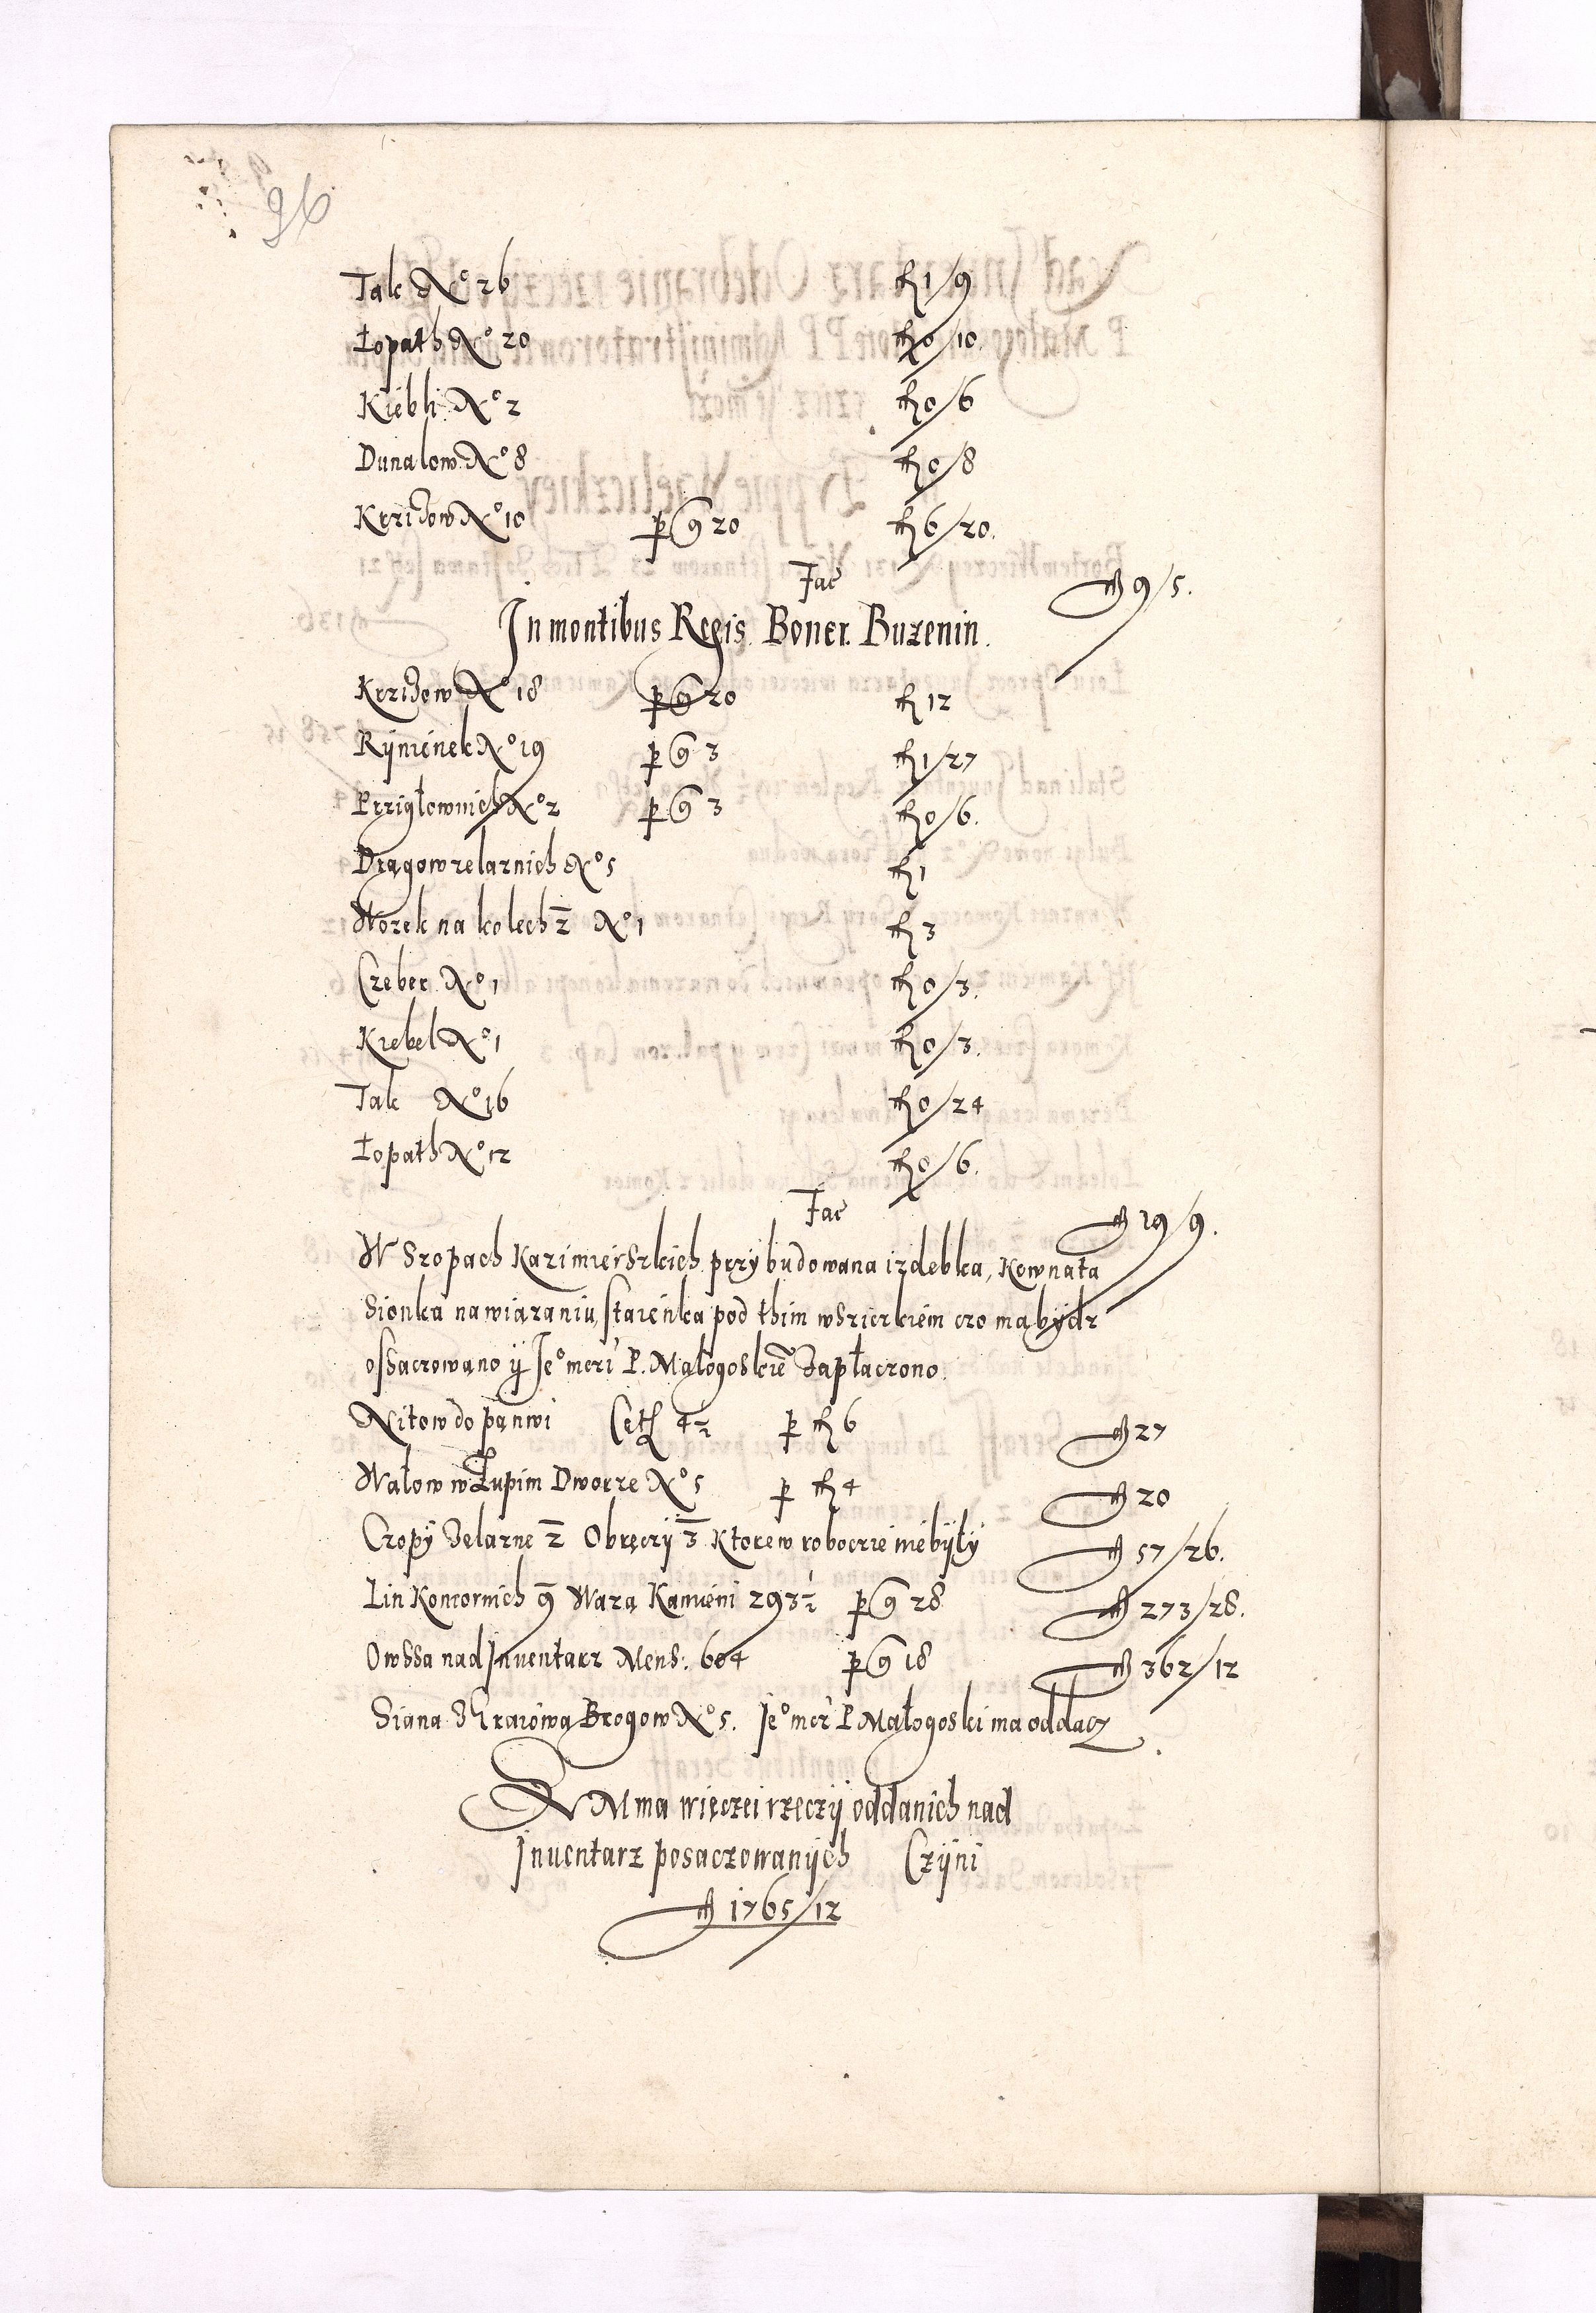 96
Tak No 26 fl 1/9
Łopath No 20 fl 0/10.
Kiebli No 2 fl 0/6
Dunalow No 8 fl 0/8
Krzidow No 10 p g 20 fl 6/20.
Fac fl 9/5.
In montibus Regis. Boner. Buzenin.
Krzidow No 18 p g 20 fl 12
Rÿnienek No 19 p g 3 fl 1/27
Przigłownich No 2 p g 3 fl 0/6.
Drągow zelaznich No 5 fl 1
Wozek na kolech 2 No 1 fl 3
Czeber No 1 fl 0/3.
Kiebel No 1 fl 0/3.
Tak No 16 fl 0/24
Łopath No 12 fl 0/6.
Fac fl 19/9.
W Szopach Kazimierszkich przybudowana izdebka, Kownata
Sionka na wiązaniu, staienka pod thim wszitkiem czo ma bydz
oszaczowano ÿ Jeo mczi P. Małogoskie Zapłaczono.
Nitow do panwi Cetł 4 1/2 p fl 6 fl 27
Wałow w Łupim Dworze No 5 p fl 4 fl 20
Czopÿ Zelazne 2 Obręczÿ 3 Ktore w roboczie niebÿłÿ fl 57/26.
Lin Koniornich 9 Wazą Kamieni 293 1/2 p g 28 fl 273/28.
Owssa nad Inventarz Mens: 604 p g 18 fl 362/12
Siana Brogow No 5. Jeo mcz P Małogoski ma oddacz
SVMma więczei rzeczÿ oddanich nad
Inuentarz posaczowanÿch Czÿni
fl 1765/12